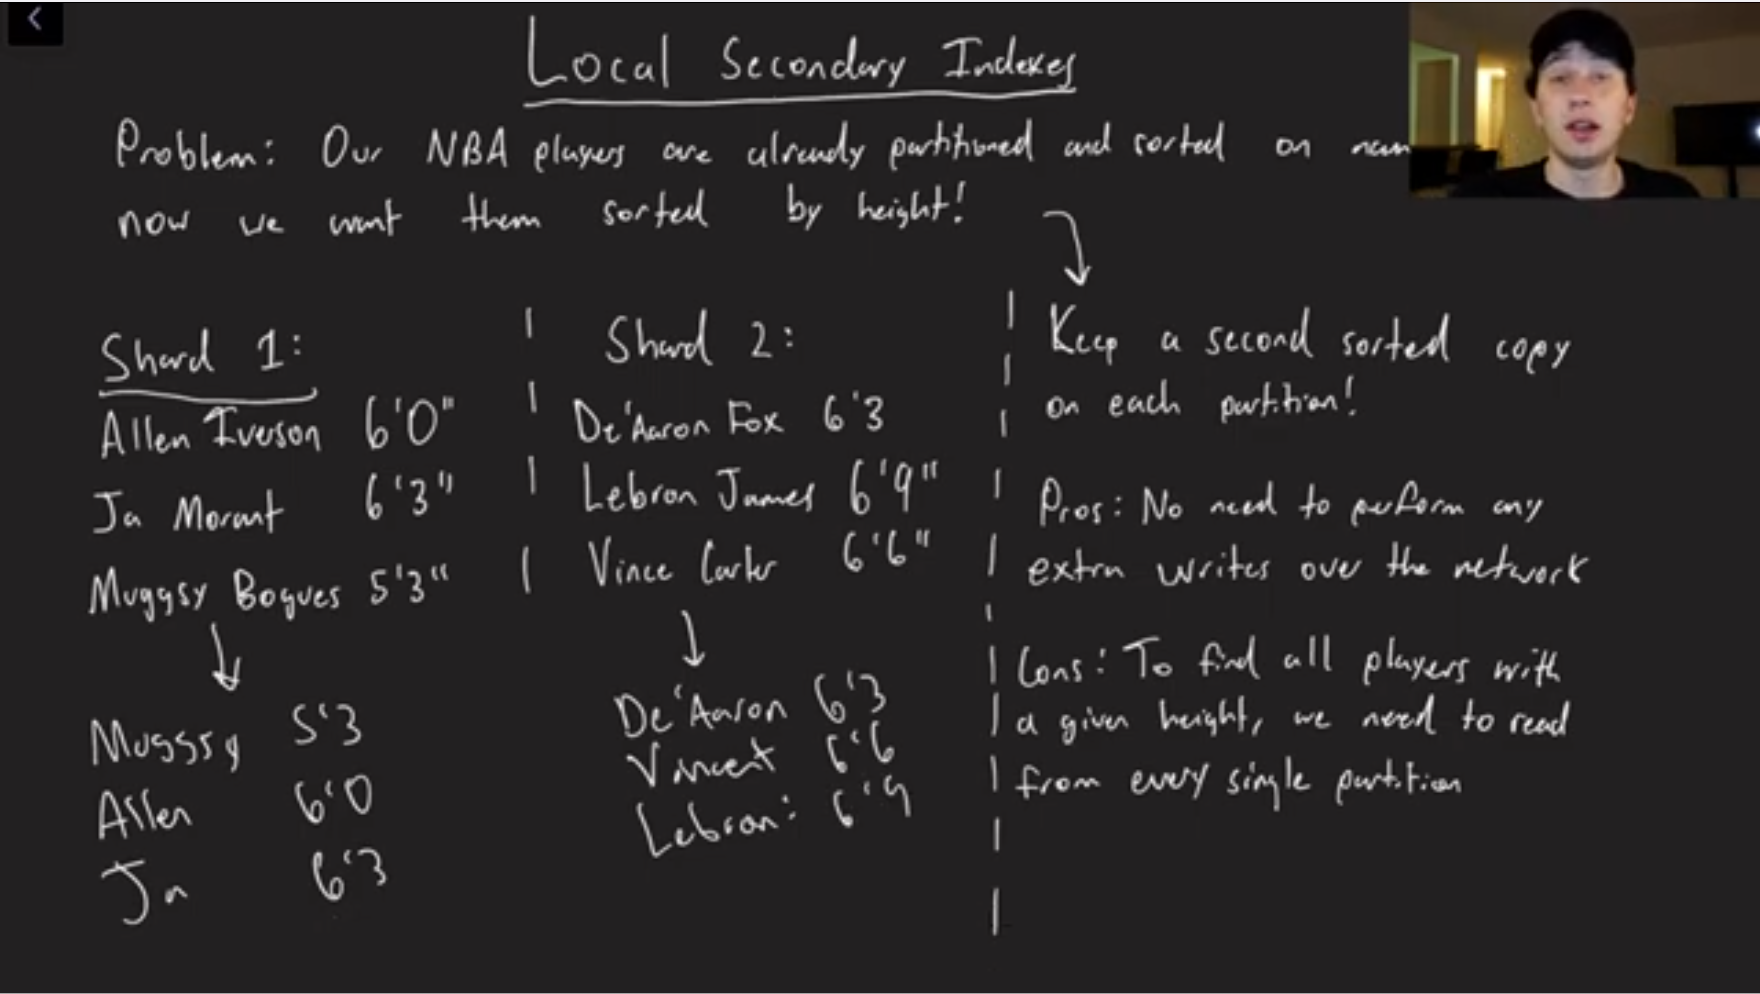 Local Secondary Indexes
Problem: Our NBA players are already partitioned and sorted on nam
now we want them sorted by height!
Shard 1:
Allen Iverson 6'0"
Ja Morant 6'3"
Muggsy Bogues 5'3"
Muggsy 5'3
Allen 6'0
Ja 6'3
Shard 2:
De'Aaron Fox 6'3
Lebron James 6'9"
Vince Carter 6'6"
De'Aaron 6'3
Vincent 6'6
Lebron: 6'9
Keep a second sorted copy
on each partition!
Pros: No need to perform any
extra writes over the network
Cons: To find all players with
a given height, we need to read
from every single partition